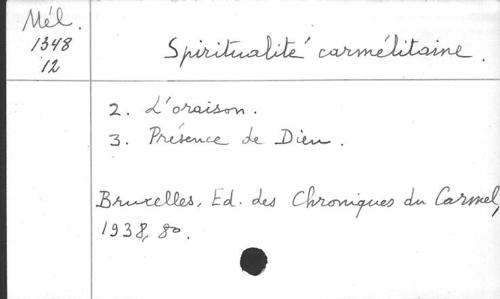 Mél.
1348
12
Spiritualité carmélitaine.
2. L'oraison.
3. Présence de Dieu.
Bruxelles, Ed. des Chroniques du Carmel,
1938, 8o.